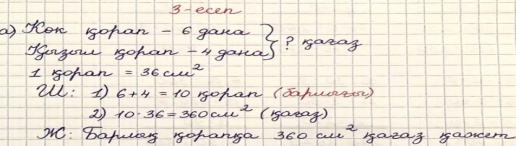 3-есеп
а) Көк қорап – 6 дана
Қызыл қорап – 4 дана } ? қағаз
1 қорап = 36 см²
Ш: 1) 6+4 = 10 қорап (барлығы)
2) 10·36 = 360 см² (қағаз)
Ж: Барлық қорапқа 360 см² қағаз қажет